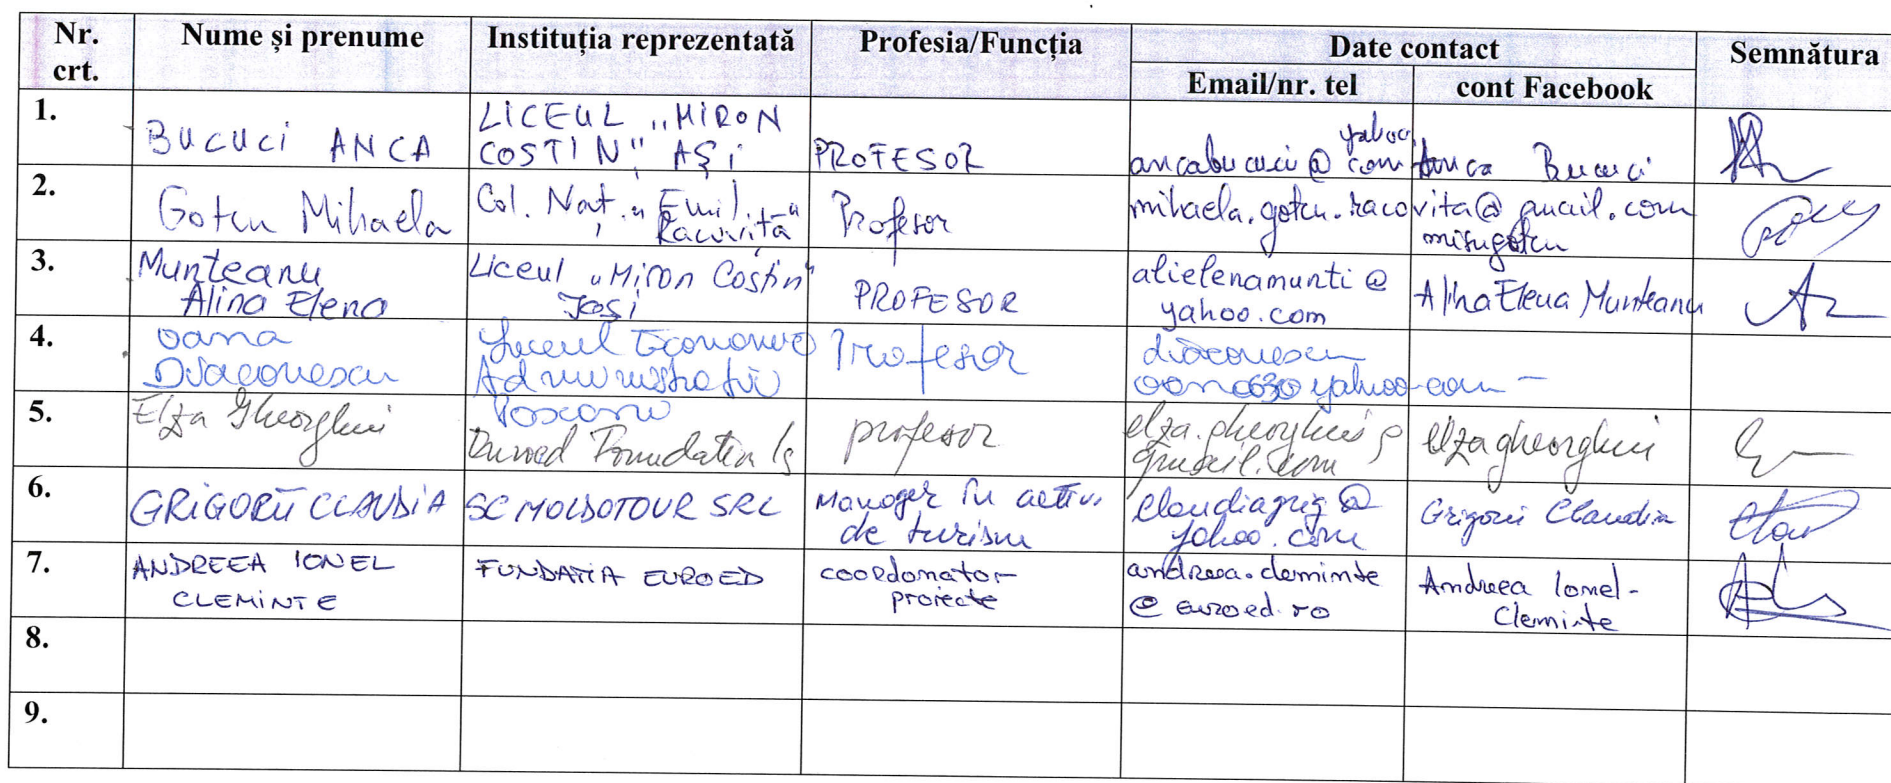 Nr. crt. Nume și prenume Instituția reprezentată Profesia/Funcția Date contact Semnătura
Email/nr. tel cont Facebook
1. BUCUCI ANCA LICEUL „MIRON COSTIN" AȘI PROFESOR ancabucuci@yahoo.com Anca Bucuci
2. Gotcu Mihaela Col. Naț. „Emil Racoviță" Profesor mihaela.gotcu.racovita@gmail.com
misugotcu
3. Munteanu Alina Elena Liceul „Miron Costin" Iași PROFESOR alielenamunti@yahoo.com Alina Elena Munteanu
4. Oana Diaconescu Liceul Economic Administrativ Profesor diaconescu
5. Elza Gheorghiu Foundation Is profesor elza.gheorghiu@gmail.com elzagheorghiu
6. GRIGORII CLAUDIA SC MOLDOTOUR SRL Manager în activ. de turism claudiagrig@yahoo.com Grigorii Claudia
7. ANDREEA IONEL CLEMINTE FUNDATIA EUROED coordonator proiecte andreea.cleminte@euroed.ro Andreea Ionel-Cleminte
8.
9.